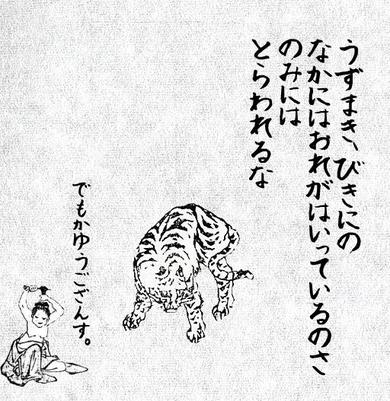 うずまき、びきにの
なかにはおれがはいっているのさ
のみには
とらわれるな
でもかゆうござんす。